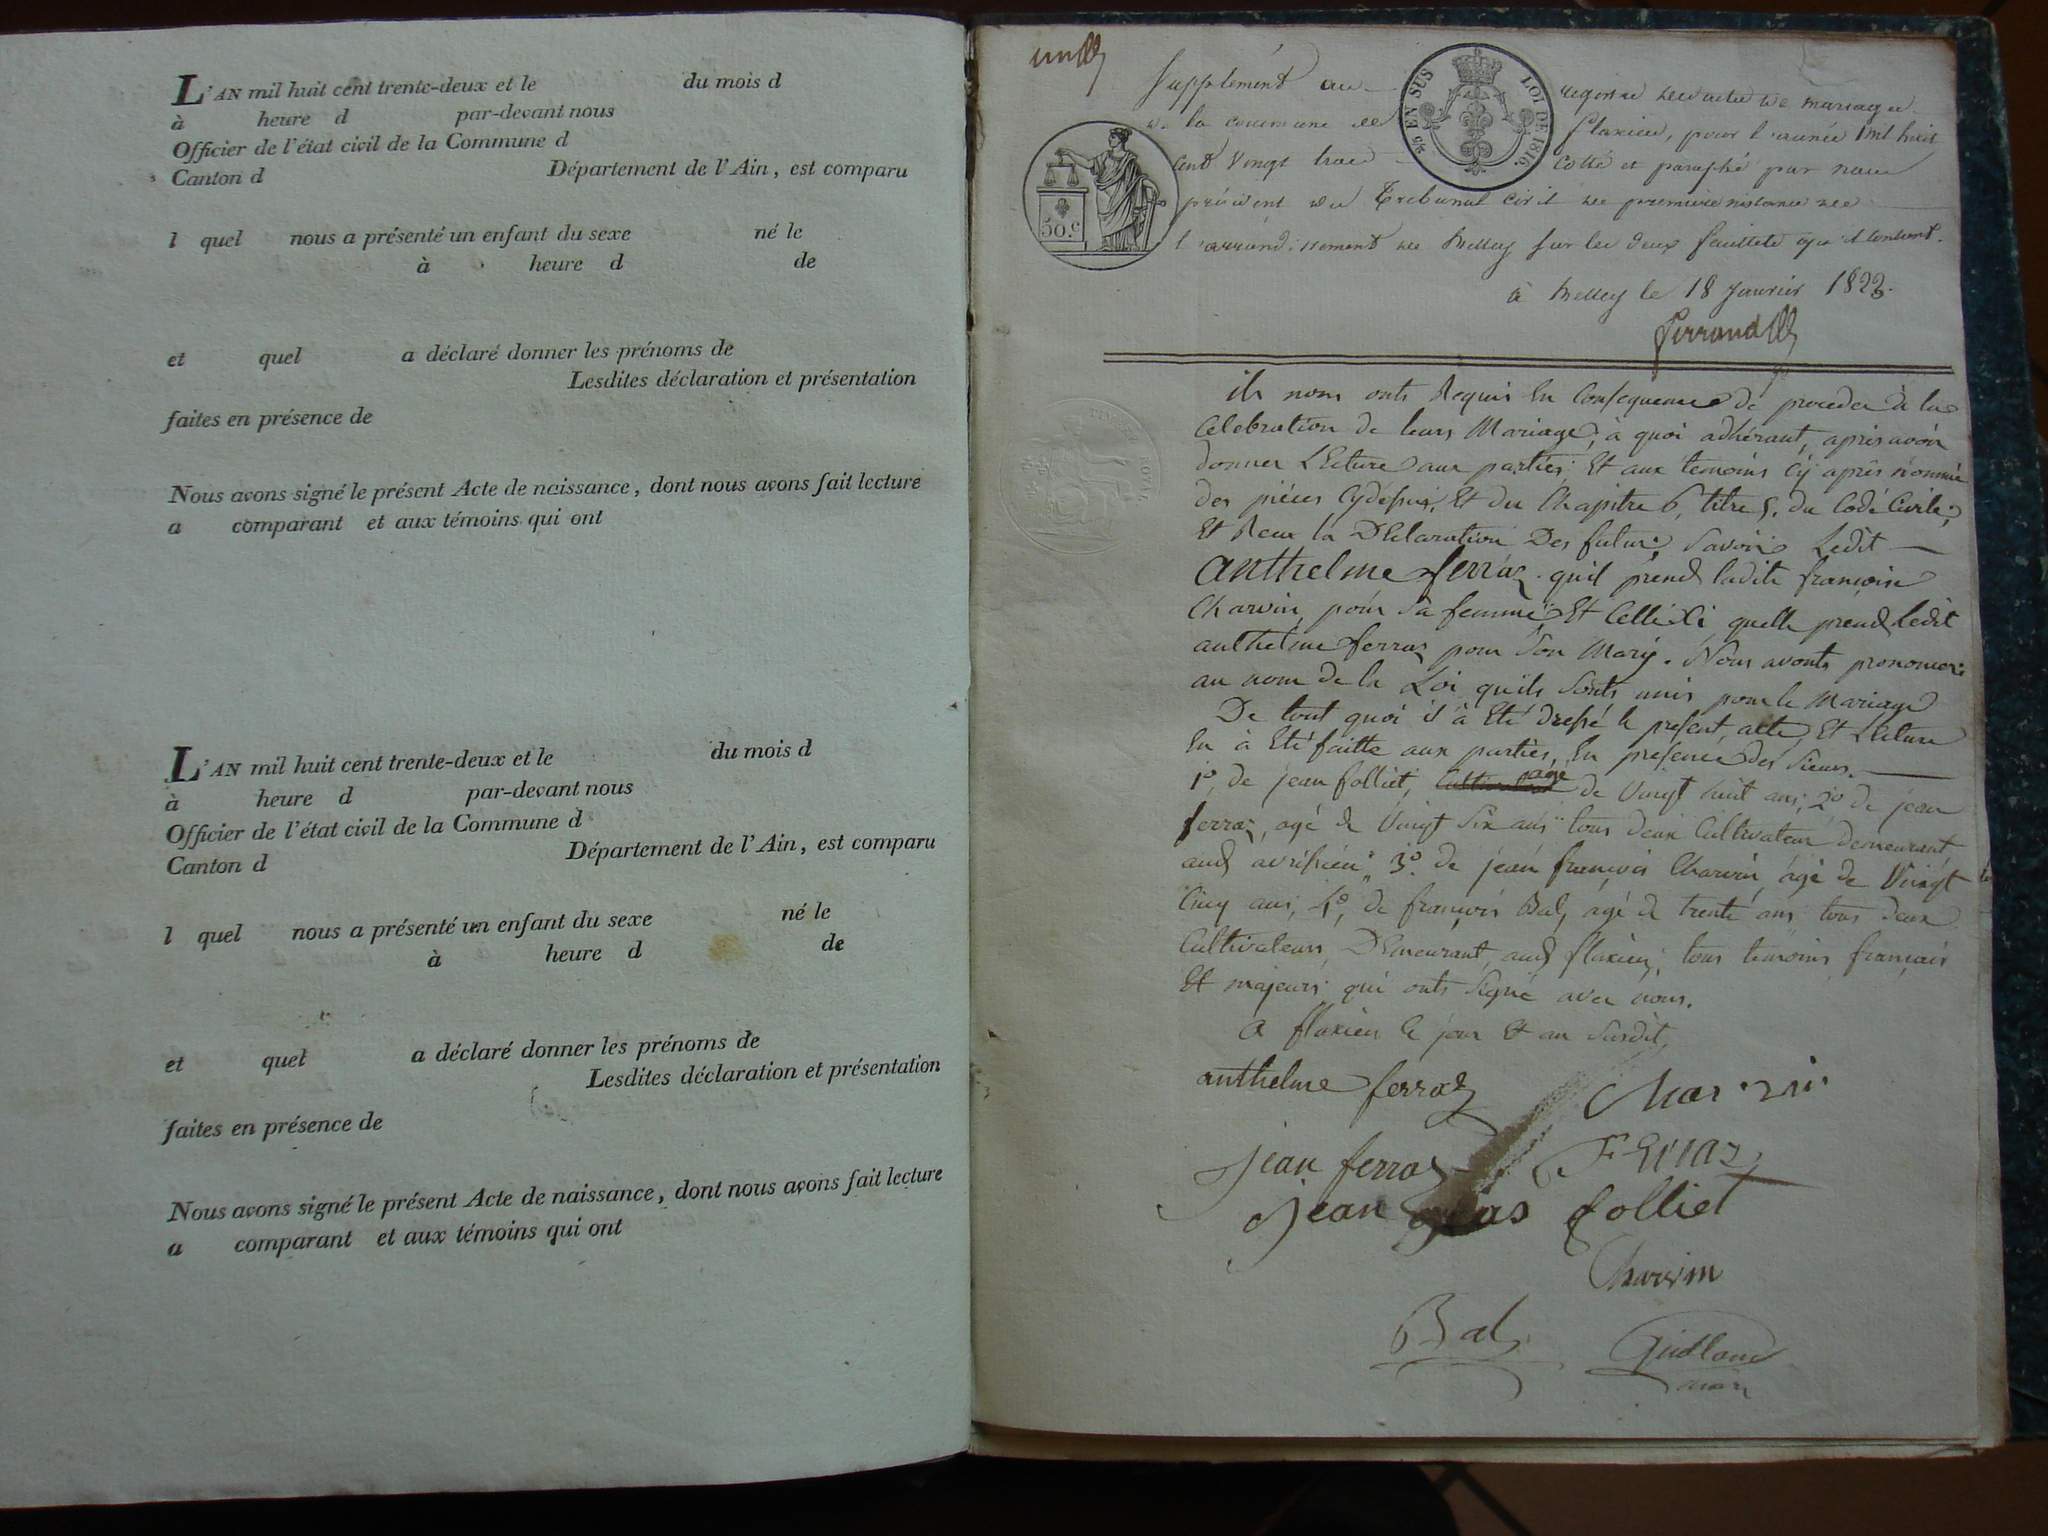 L'AN mil huit cent trente-deux et le du mois d
à heure d par-devant nous
Officier de l'état civil de la Commune d
Canton d Département de l'Ain, est comparu
l quel nous a présenté un enfant du sexe né le
à heure d de
et quel a déclaré donner les prénoms de
Lesdites déclaration et présentation
faites en présence de
Nous avons signé le présent Acte de naissance, dont nous avons fait lecture
a comparant et aux témoins qui ont
L'AN mil huit cent trente-deux et le du mois d
à heure d par-devant nous
Officier de l'état civil de la Commune d
Canton d Département de l'Ain, est comparu
l quel nous a présenté un enfant du sexe né le
à heure d de
et quel a déclaré donner les prénoms de
Lesdites déclaration et présentation
faites en présence de
Nous avons signé le présent Acte de naissance, dont nous avons fait lecture
a comparant et aux témoins qui ont
Supplément au registre des actes de mariage
de la commune de flaxieu, pour l'année mil huit
cent vingt trois cotté et paraphé par nous
président du Tribunal civil de première instance de
l'arrondissement de Belley sur les deux feuillets qu'il contient.
à Belley le 18 Janvier 1823.
Ferrand
EN SUS LOI DE 1816.
50.c
ils nous onts Requis En Consequence de proceder à la
Celebration de leurs Mariage, à quoi adhérant, après avoir
donner LEcture aux parties Et aux temoins Cy après nommé
des pièces Cydessus, Et du Chapitre 6, titre 5. du Code Civile,
Et Recu la DEclaration Des futur, Savoir Ledit
anthelme ferraz qu'il prend ladite francoise
Charvin, pour Sa femme, Et Celle Ci quelle prend ledit
anthelme ferraz pour Son Mary. Nous avonts prononcer
au nom de la Loi quils Sonts unis pour le Mariage
De tout quoi il à Eté dressé le present acte, Et LEcture
En à Eté faitte aux parties, En presence des Sieurs.
1º, de jean folliet, agé de Vingt huit ans, 2º de jean
ferraz, agé de Vingt Six ans tous deux Cultivateur demeurant
aud 3º. de jean françois Charvin, âgé de Vingt
Cinq ans, 4º, de françois Bal, agé de trente ans tous deux
Cultivateurs, DEmeurant, aud flaxieu, tous temoins français
Et majeurs qui onts Signé avec nous.
A flaxieu le jour Et an Susdit,
anthelme ferraz Charvin
jean ferraz Ferraz
jean folliet
Charvin
Bal Guilland
maire